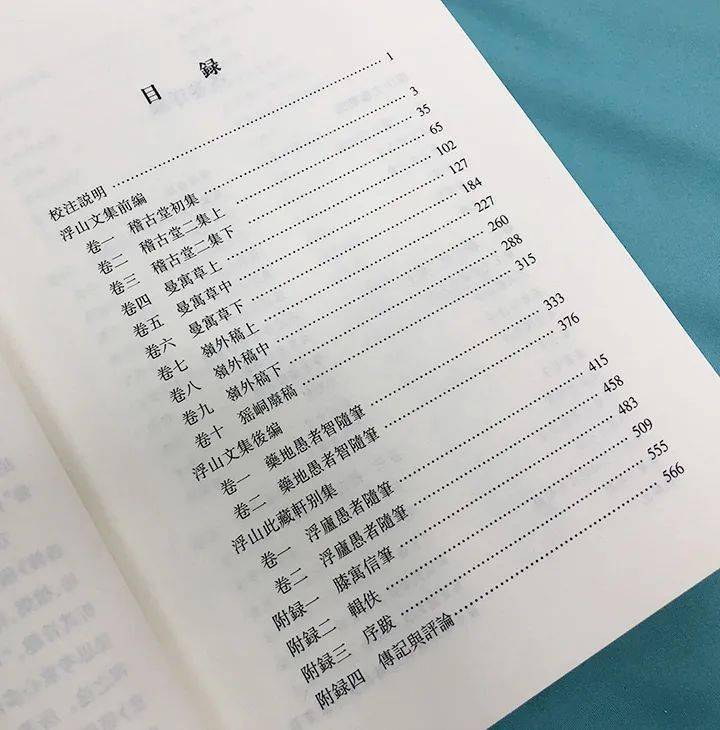 目 録
校注説明 …… 1
浮山文集前編
卷一 稽古堂初集 …… 3
卷二 稽古堂二集上 …… 35
卷三 稽古堂二集下 …… 65
卷四 曼寓草上 …… 102
卷五 曼寓草中 …… 127
卷六 曼寓草下 …… 184
卷七 嶺外稿上 …… 227
卷八 嶺外稿中 …… 260
卷九 嶺外稿下 …… 288
卷十 猺峒廢稿 …… 315
浮山文集後編
卷一 藥地愚者智隨筆 …… 333
卷二 藥地愚者智隨筆 …… 376
浮山此藏軒別集
卷一 浮廬愚者隨筆 …… 415
卷二 浮廬愚者隨筆 …… 458
附録一 膝寓信筆 …… 483
附録二 輯佚 …… 509
附録三 序跋 …… 555
附録四 傳記與評論 …… 566